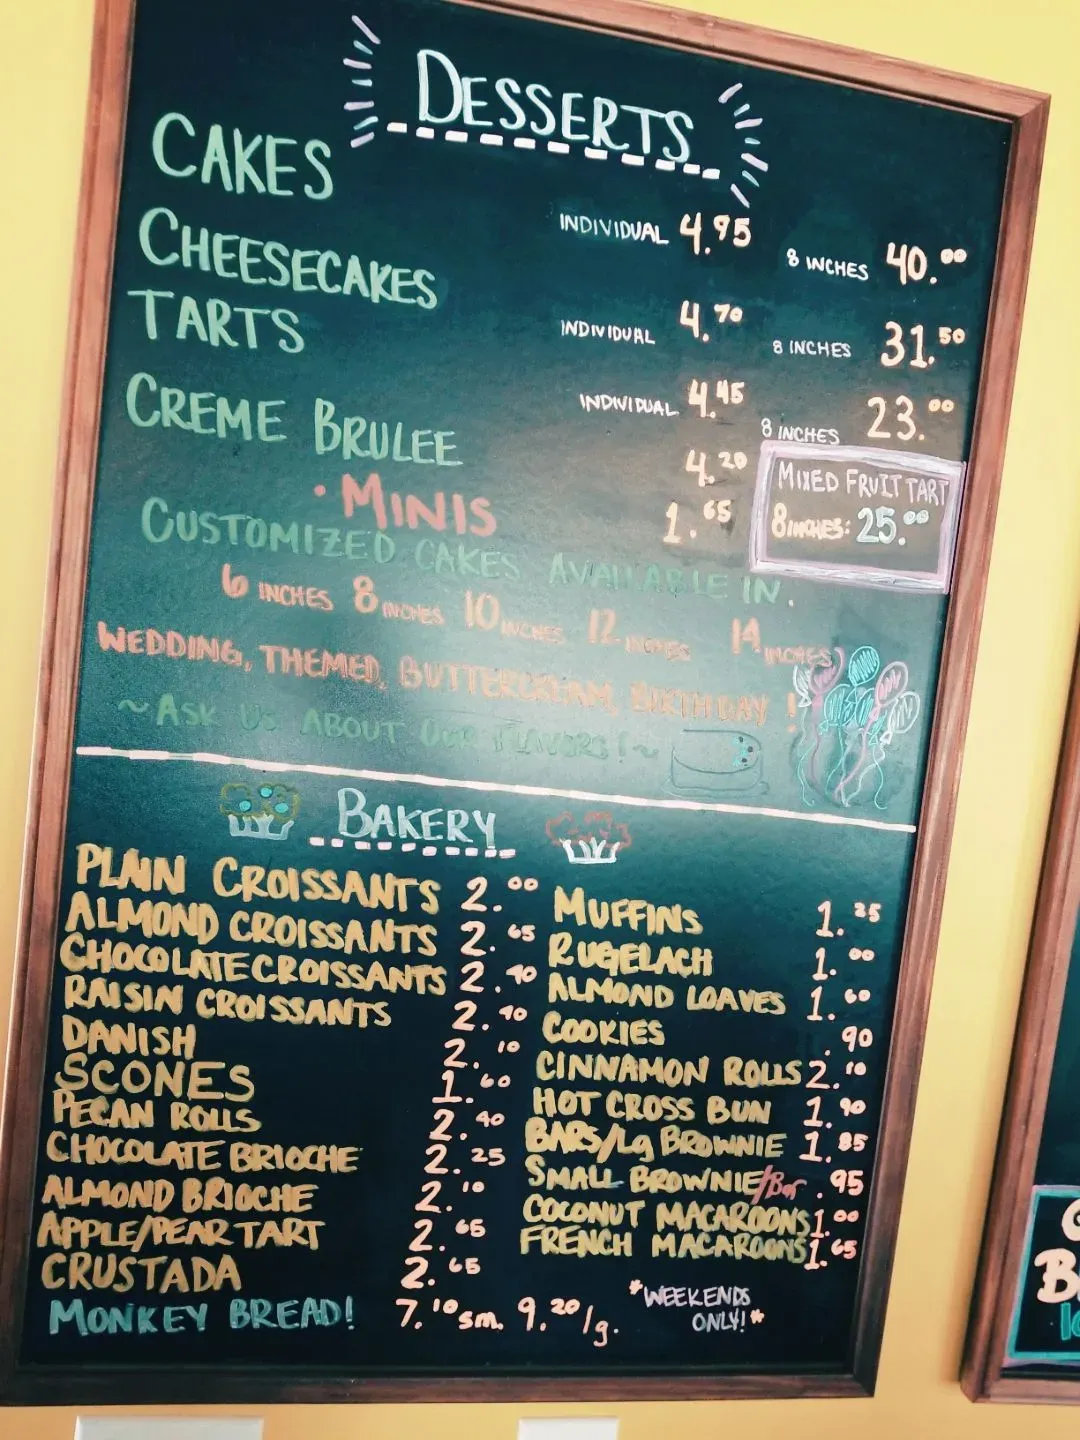 DESSERTS
CAKES INDIVIDUAL 4.95 8 INCHES 40.00
CHEESECAKES INDIVIDUAL 4.70 8 INCHES 31.50
TARTS INDIVIDUAL 4.45 8 INCHES 23.00
CREME BRULEE 4.20
• MINIS 1.65
MIXED FRUIT TART
8 INCHES: 25.00
CUSTOMIZED CAKES AVAILABLE IN.
6 INCHES 8 INCHES 10 INCHES 12 INCHES 14 INCHES
WEDDING, THEMED, BUTTERCREAM, BIRTHDAY !
~ASK US ABOUT OUR FLAVORS!~
BAKERY
PLAIN CROISSANTS 2.00
ALMOND CROISSANTS 2.65
CHOCOLATE CROISSANTS 2.40
RAISIN CROISSANTS 2.40
DANISH 2.10
SCONES 1.60
PECAN ROLLS 2.40
CHOCOLATE BRIOCHE 2.25
ALMOND BRIOCHE 2.10
APPLE/PEAR TART 2.65
CRUSTADA 2.65
MONKEY BREAD! 7.10 sm. 9.20/g.
MUFFINS 1.25
RUGELACH 1.00
ALMOND LOAVES 1.60
COOKIES .90
CINNAMON ROLLS 2.10
HOT CROSS BUN 1.90
BARS/Lg BROWNIE 1.85
SMALL BROWNIE/Bar .95
COCONUT MACAROONS 1.00
FRENCH MACAROONS 1.65
*WEEKENDS
ONLY!*